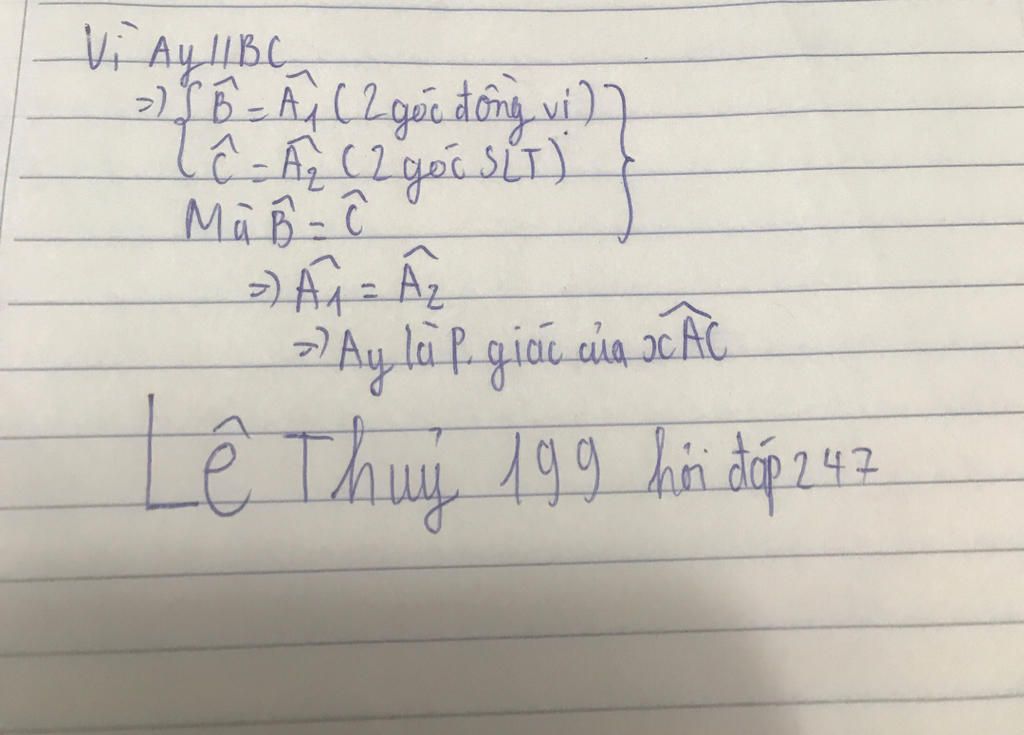 Vì Ay // BC
=> { B̂ = Â1 ( 2 góc đồng vị )
Ĉ = Â2 ( 2 góc SLT ) }
Mà B̂ = Ĉ
=> Â1 = Â2
=> Ay là p. giác của xÂC
Lê Thuỷ 199 hỏi đáp 247